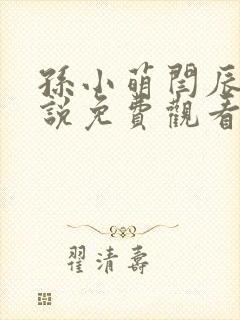 孫小萌閆辰
說免費觀看
翟清壽